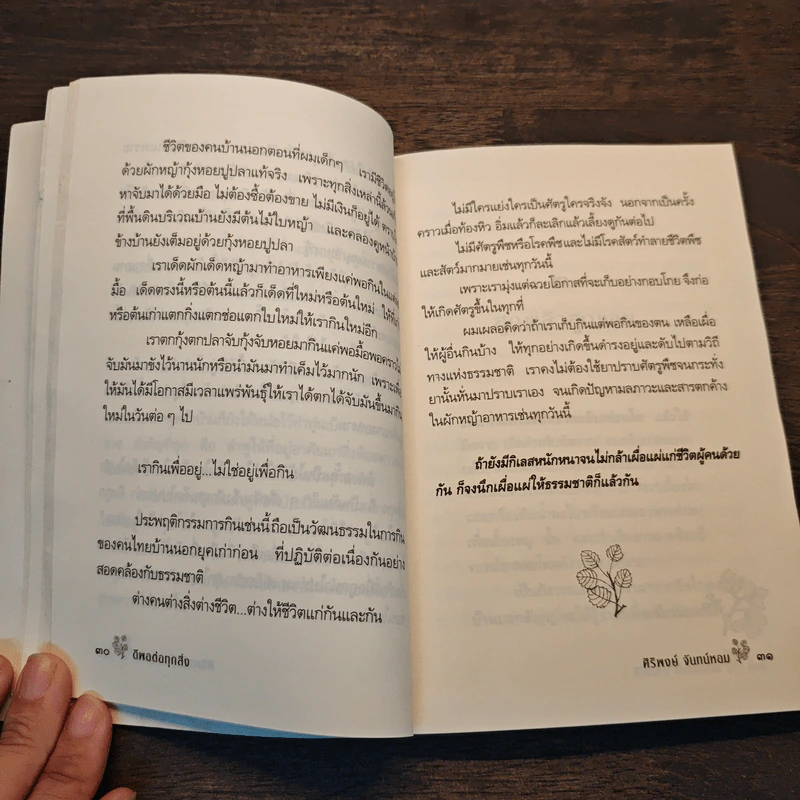 ชีวิตของคนบ้านนอกตอนที่ผมเด็กๆ เรามีชีวิต
ด้วยผักหญ้ากุ้งหอยปูปลาแท้จริง เพราะทุกสิ่งเหล่านี้ล้วน
หาจับมาได้ด้วยมือ ไม่ต้องซื้อต้องขาย ไม่มีเงินก็อยู่ได้
ที่พื้นดินบริเวณบ้านยังมีต้นไม้ใบหญ้า และคลองคูหน้า
ข้างบ้านยังเต็มอยู่ด้วยกุ้งหอยปูปลา
เราเด็ดผักเด็ดหญ้ามาทำอาหารเพียงแค่พอกินใน
มื้อ เด็ดตรงนี้หรือต้นนี้แล้วก็เด็ดที่ใหม่หรือต้นใหม่ ให้
หรือต้นเก่าแตกกิ่งแตกช่อแตกใบใหม่ให้เรากินใหม่อีก
เราตกกุ้งตกปลาจับกุ้งจับหอยมากินแค่พอมื้อพอคราว
จับมันมาขังไว้นานนักหรือนำมันมาทำเค็มไว้มากนัก เพราะ
ให้มันได้มีโอกาสมีเวลาแพร่พันธุ์ให้เราได้ตกได้จับมันขึ้นมากิน
ใหม่ในวันต่อ ๆ ไป
เรากินเพื่ออยู่...ไม่ใช่อยู่เพื่อกิน
ประพฤติกรรมการกินเช่นนี้ ถือเป็นวัฒนธรรมในการกิน
ของคนไทยบ้านนอกยุคเก่าก่อน ที่ปฏิบัติต่อเนื่องกันอย่าง
สอดคล้องกับธรรมชาติ
ต่างคนต่างสิ่งต่างชีวิต...ต่างให้ชีวิตแก่กันและกัน
๓๐ ดีพอต่อทุกสิ่ง
ไม่มีใครแย่งใครเป็นศัตรูใครจริงจัง นอกจากเป็นครั้ง
คราวเมื่อท้องหิว อิ่มแล้วก็ละเลิกแล้วเลี้ยงดูกันต่อไป
ไม่มีศัตรูพืชหรือโรคพืชและไม่มีโรคสัตว์ทำลายชีวิตพืช
และสัตว์มากมายเช่นทุกวันนี้
เพราะเรามุ่งแต่ฉวยโอกาสที่จะเก็บอย่างกอบโกย จึงก่อ
ให้เกิดศัตรูขึ้นในทุกที่
ผมเผลอคิดว่าถ้าเราเก็บกินแต่พอกินของตน เหลือเผื่อ
ให้ผู้อื่นกินบ้าง ให้ทุกอย่างเกิดขึ้นดำรงอยู่และดับไปตามวิถี
ทางแห่งธรรมชาติ เราคงไม่ต้องใช้ยาปราบศัตรูพืชจนกระทั่ง
ยานั้นหันมาปราบเราเอง จนเกิดปัญหามลภาวะและสารตกค้าง
ในผักหญ้าอาหารเช่นทุกวันนี้
ถ้ายังมีกิเลสหนักหนาจนไม่กล้าเผื่อแผ่แก่ชีวิตผู้คนด้วย
กัน ก็จงนึกเผื่อแผ่ให้ธรรมชาติก็แล้วกัน
ศิริพงษ์ จันทน์หอม ๓๑